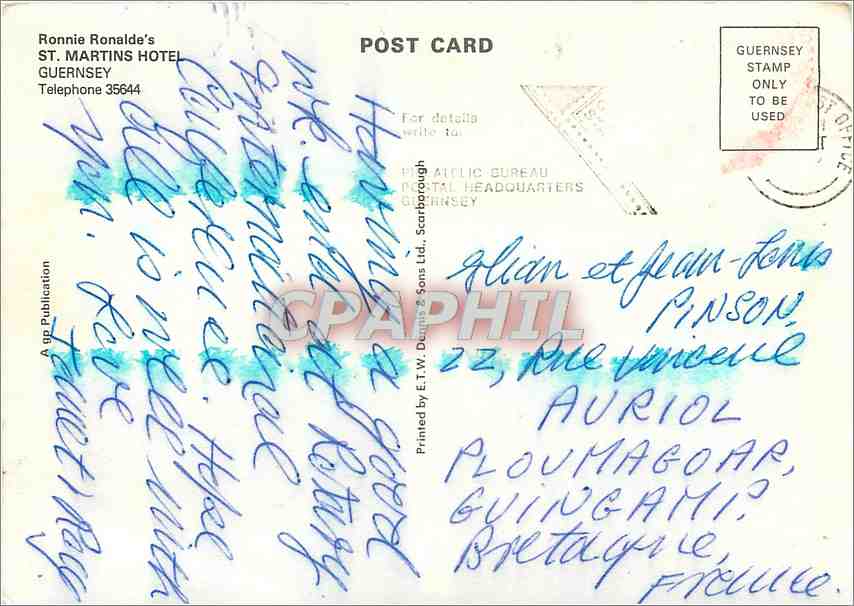 Ronnie Ronalde's
ST. MARTINS HOTEL
GUERNSEY
Telephone 35644
POST CARD
GUERNSEY
STAMP
ONLY
TO BE
USED
For details
write to:
PHILATELIC BUREAU
POSTAL HEADQUARTERS
GUERNSEY
POST OFFICE
Having a good
wk. end at Rotary
International
Conference. Hope
all is well with
you. Love
A gp Publication
Printed by E.T.W. Dennis & Sons Ltd., Scarborough
CPAPHIL
et Jean-Louis
PINSON,
22, Rue Vincent
AURIOL
PLOUMAGOAR,
GUINGAMP.
Bretagne,
France.